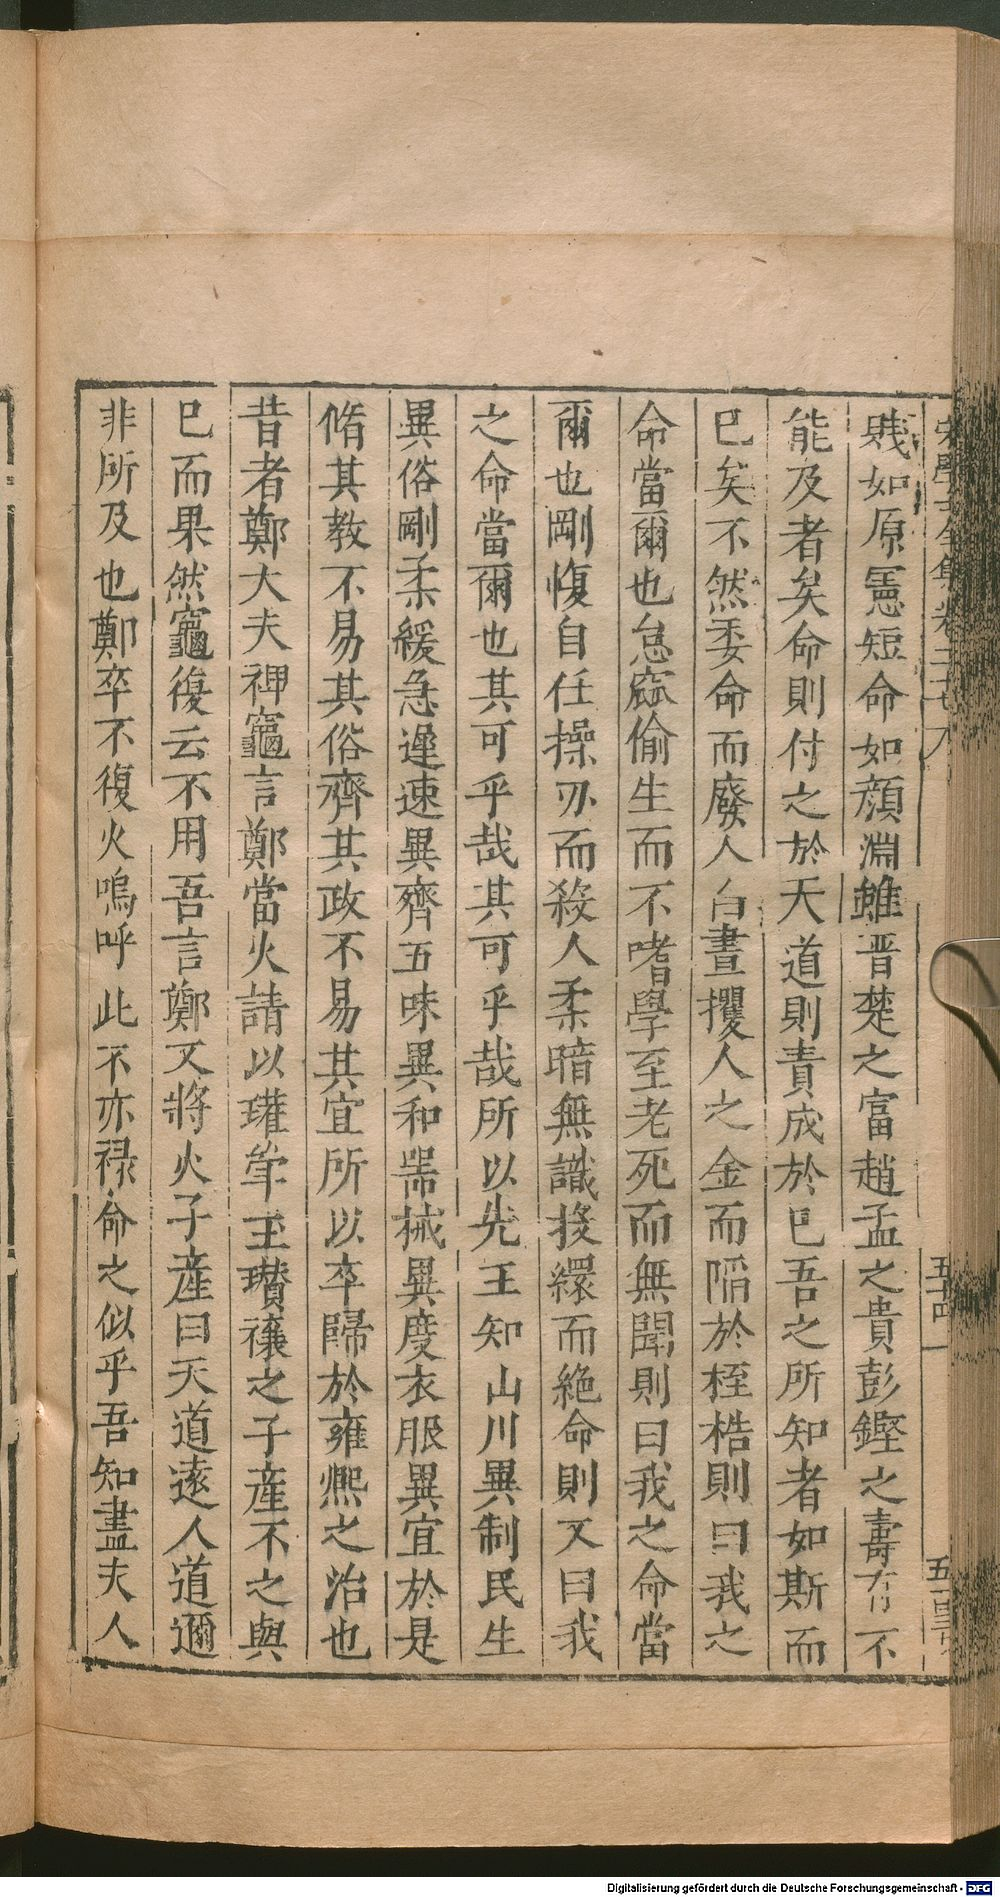 宋學士全集卷二十八
五十四
賤如原憲短命如顏淵雖晋楚之富趙孟之貴彭鏗之壽有不
能及者矣命則付之於天道則責成於巳吾之所知者如斯而
巳矣不然委命而廢人白晝攫人之金而陷於桎梏則曰我之
命當爾也怠窳偷生而不嗜學至老死而無聞則曰我之命當
爾也剛愎自任操刅而殺人柔暗無識投繯而絶命則又曰我
之命當爾也其可乎哉其可乎哉所以先王知山川異制民生
異俗剛柔緩急遲速異齊五味異和噐械異度衣服異宜於是
脩其教不易其俗齊其政不易其宜所以卒歸於雍熈之治也
昔者鄭大夫裨竈言鄭當火請以瓘斚玉瓚禳之子産不之與
巳而果然竈復云不用吾言鄭又將火子産曰天道遠人道邇
非所及也鄭卒不復火嗚呼此不亦禄命之似乎吾知盡夫人
Digitalisierung gefördert durch die Deutsche Forschungsgemeinschaft - DFG